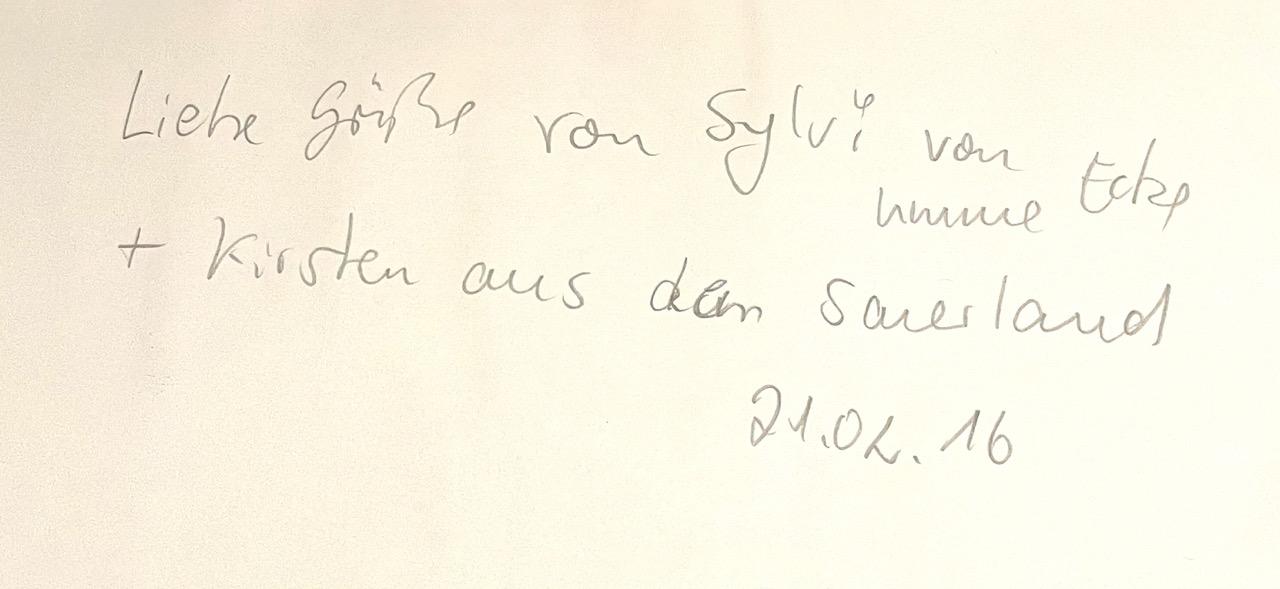 Liebe Grüße von Sylvi von umme Ecke
+ Kirsten aus dem Sauerland
21.02.16